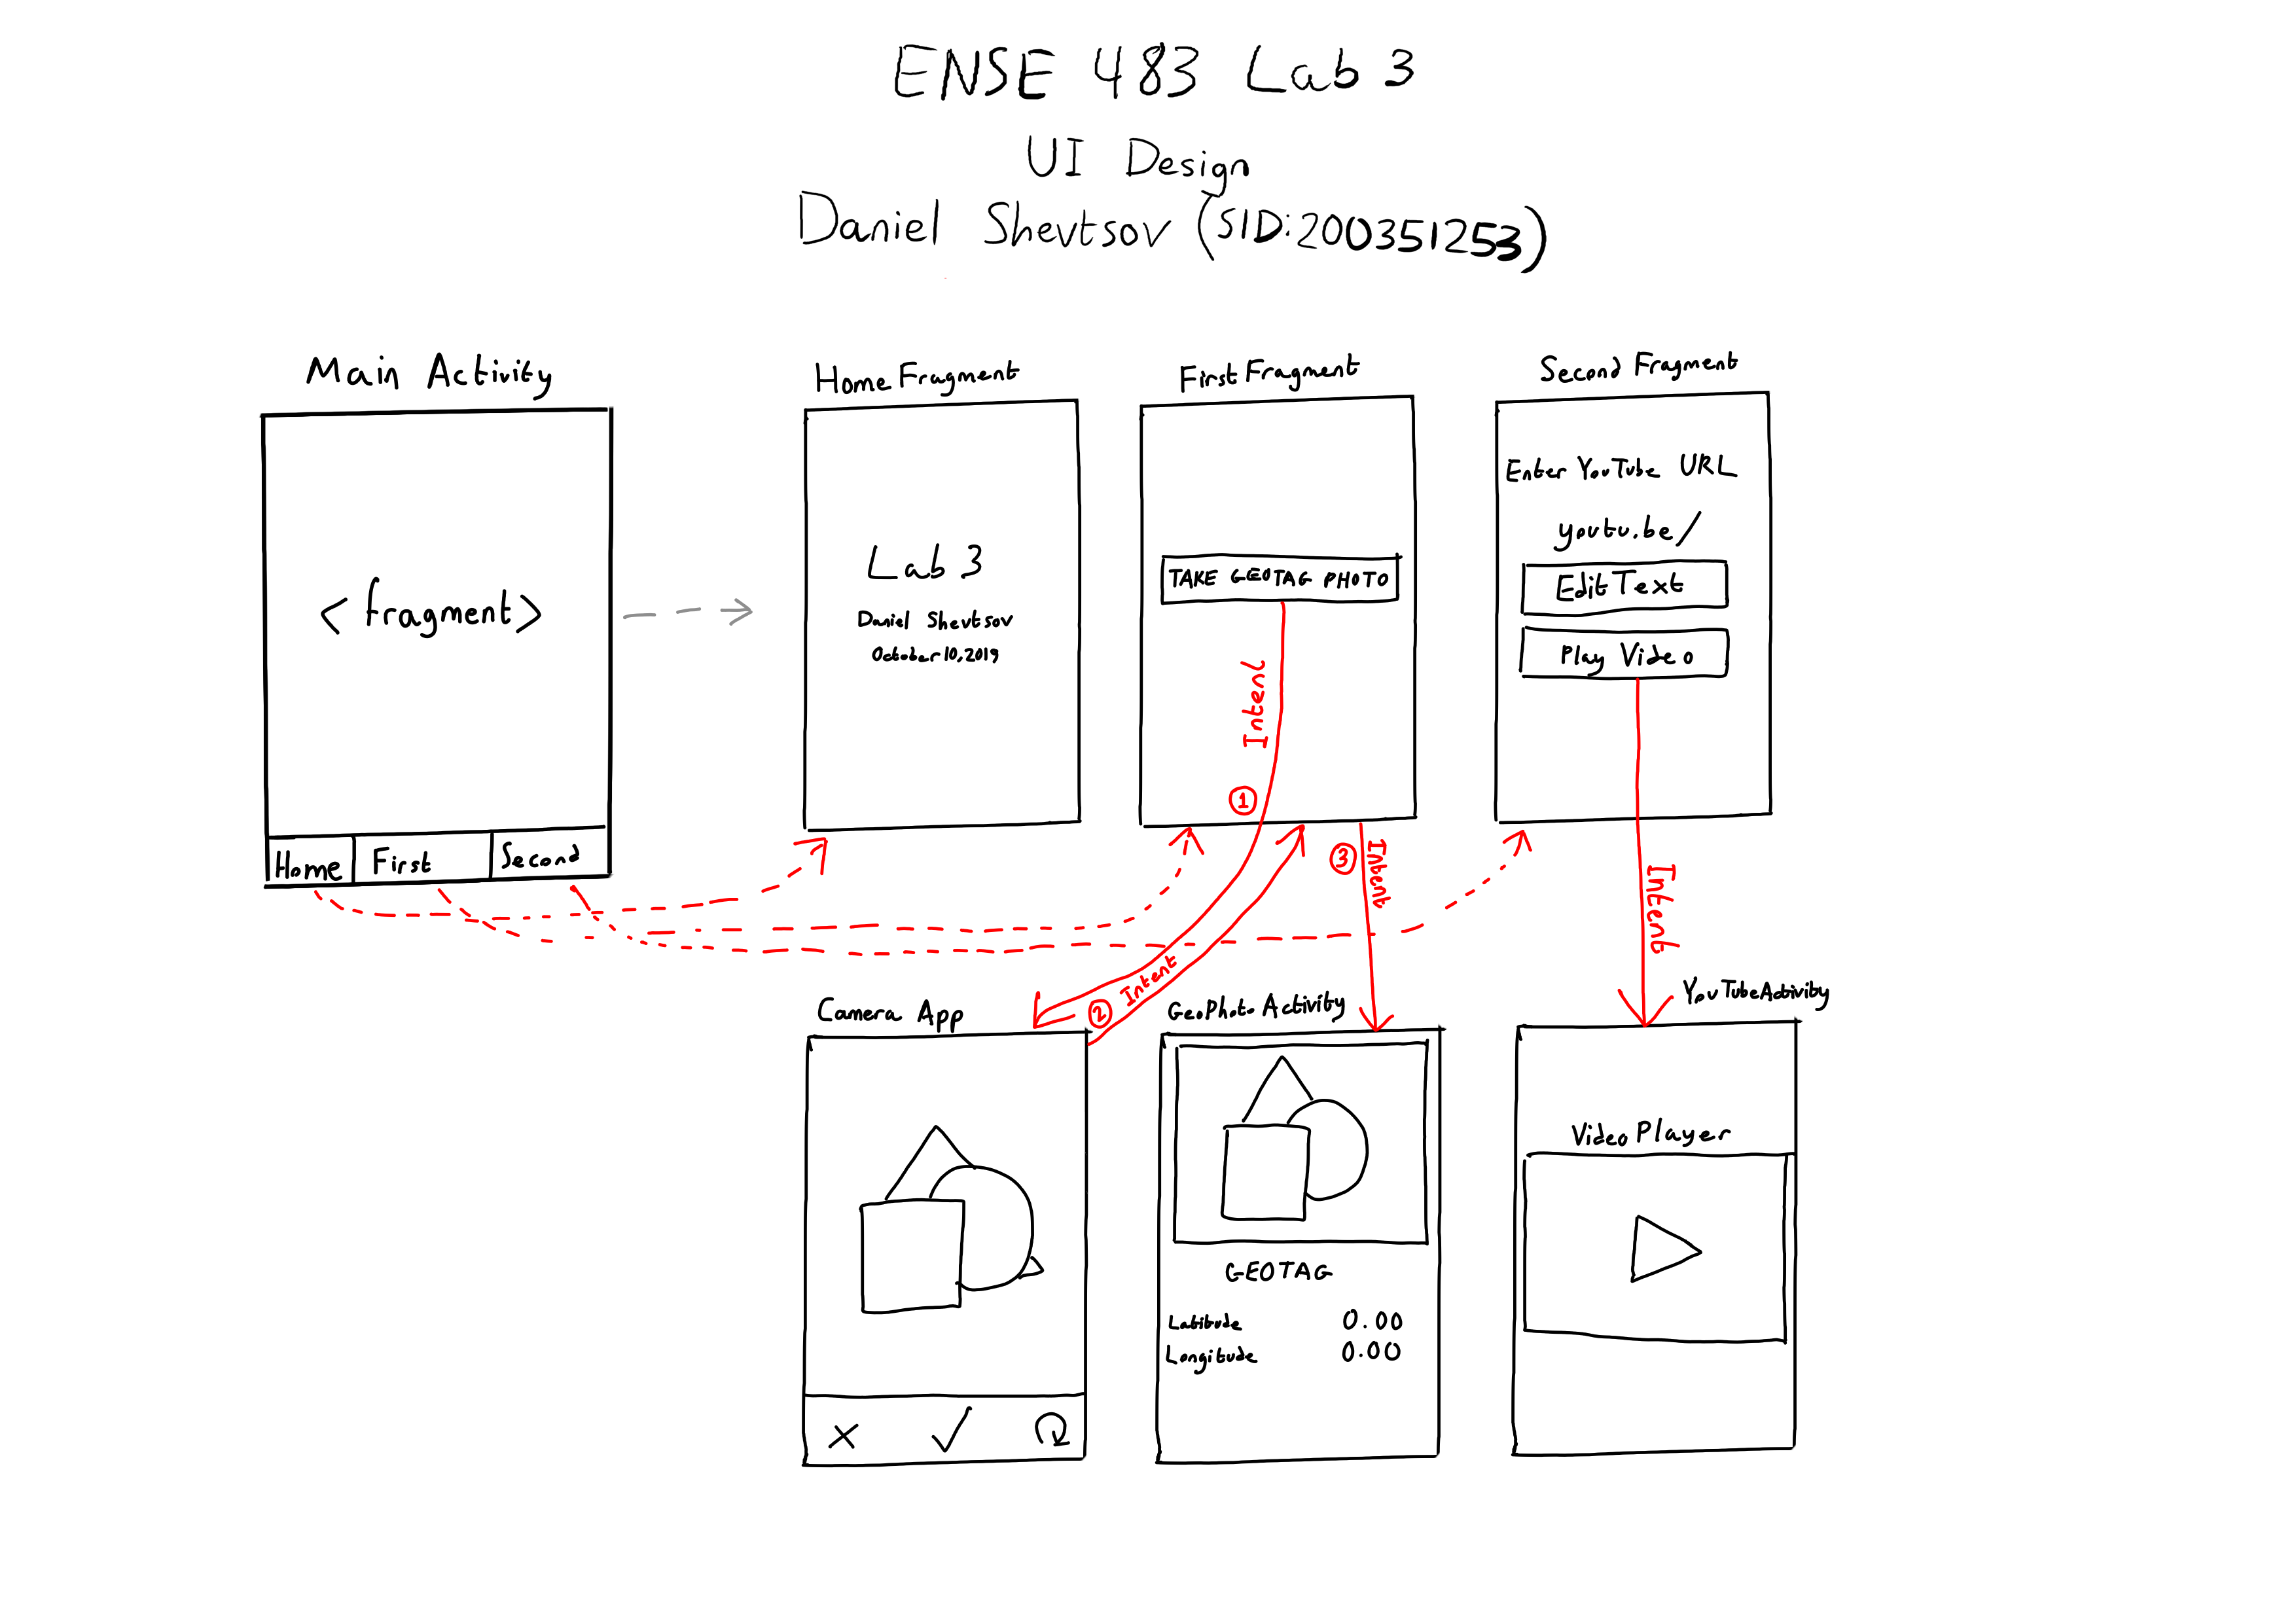 ENSE 483 Lab 3
UI Design
Daniel Shevtsov (SID:200351253)
Main Activity
<fragment>
Home First Second
Home Fragment
Lab 3
Daniel Shevtsov
October 10, 2019
First Fragment
TAKE GEOTAG PHOTO
Intent
1
2 Intent
3 Intent
Second Fragment
Enter YouTube URL
youtu.be/
Edit Text
Play Video
Intent
Camera App
GeoPhoto Activity
GEOTAG
Latitude 0.00
Longitude 0.00
YouTubeActivity
Video Player